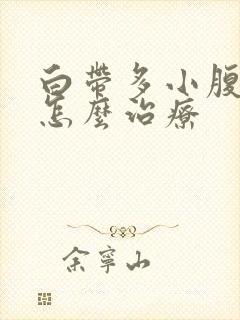 白帶多小腹
怎麼治療
余寧山